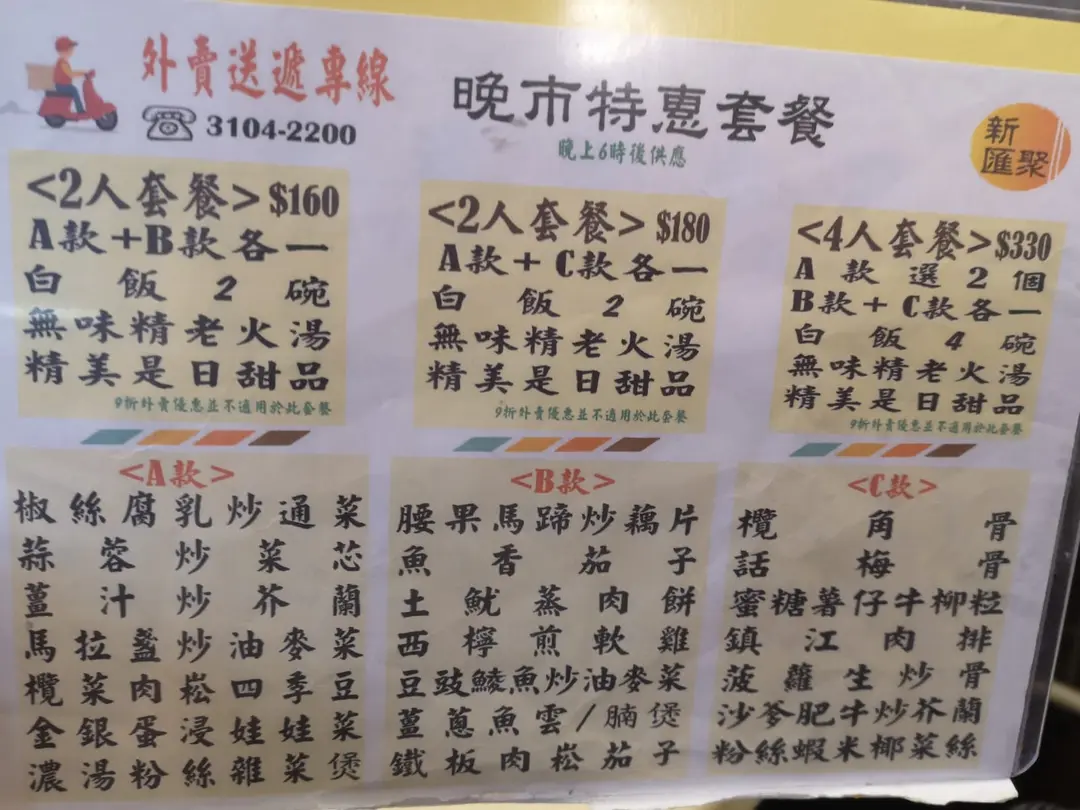 外賣送遞專線
3104-2200
晚市特惠套餐
晚上6時後供應
新
匯聚
<2人套餐> $160
A款+B款各一
白飯2碗
無味精老火湯
精美是日甜品
9折外賣優惠並不適用於此套餐
<2人套餐> $180
A款+C款各一
白飯2碗
無味精老火湯
精美是日甜品
9折外賣優惠並不適用於此套餐
<4人套餐> $330
A款選2個
B款+C款各一
白飯4碗
無味精老火湯
精美是日甜品
9折外賣優惠並不適用於此套餐
<A款>
椒絲腐乳炒通菜
蒜蓉炒菜芯
薑汁炒芥蘭
馬拉盞炒油麥菜
欖菜肉崧四季豆
金銀蛋浸娃娃菜
濃湯粉絲雜菜煲
<B款>
腰果馬蹄炒藕片
魚香茄子
土魷蒸肉餅
西檸煎軟雞
豆豉鯪魚炒油麥菜
薑蔥魚雲/腩煲
鐵板肉崧茄子
<C款>
欖角骨
話梅骨
蜜糖薯仔牛柳粒
鎮江肉排
菠蘿生炒骨
沙爹肥牛炒芥蘭
粉絲蝦米椰菜絲